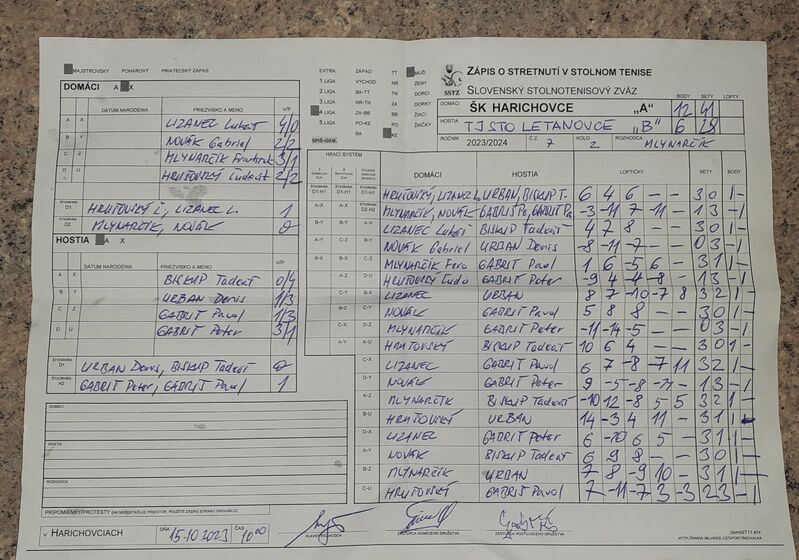 MAJSTROVSKÝ POHÁROVÝ PRIATEĽSKÝ ZÁPAS
DOMÁCI A X
DÁTUM NARODENIA PRIEZVISKO A MENO V/P
A X LIZANEC Lukáš 4/0
B Y NOVÁK Gabriel 2/2
C Z MLYNARČÍK František 3/1
D U HRUŤOVSKÝ Ľudovít 2/2
ŠTVORHRA D1 HRUŤOVSKÝ Ľ, LIZANEC L. 1
D2 MLYNARČÍK, NOVÁK 0
HOSTIA A X
DÁTUM NARODENIA PRIEZVISKO A MENO V/P
A X BISKUP Tadeáš 0/4
B Y URBAN Denis 1/3
C Z GABRIŠ Pavol 1/3
D U GABRIŠ Peter 3/1
ŠTVORHRA D1 URBAN Denis, BISKUP Tadeáš 0
ŠTVORHRA H2 GABRIŠ Peter, GABRIŠ Pavol 1
DOMÁCI
HOSTIA
ROZHODCA
PRIPOMIENKY/PROTESTY
V HARICHOVCIACH DŇA 15.10.2023 ČAS 10:00
EXTRA ZÁPAD TT MUŽI
1.LIGA VÝCHOD NR ŽENY
2.LIGA BA-TT TN DORCI
3.LIGA NR-TN ZA DORKY
4.LIGA ZA-BB BB ŽIACI
5.LIGA PO-KE PO ŽIAČKY
BA KE
SPIŠ-GEM.
SSTZ
ZÁPIS O STRETNUTÍ V STOLNOM TENISE
SLOVENSKÝ STOLNOTENISOVÝ ZVÄZ
BODY SETY LOPTY
DOMÁCI ŠK HARICHOVCE „A" 12 41
HOSTIA TJ ŠTO LETANOVCE „B" 6 28
ROČNÍK 2023/2024 Č.Z. 7 KOLO 2 ROZHODCA MLYNARČÍK
HRACÍ SYSTÉM
DOMÁCI HOSTIA LOPTIČKY SETY BODY
HRUŤOVSKÝ, LIZANEC L. URBAN, BISKUP T. 6 4 6 - - 3 0 1 -
MLYNARČÍK, NOVÁK GABRIŠ Pe, GABRIŠ Pa -3 -11 7 -11 - 1 3 - 1
LIZANEC Lukáš BISKUP Tadeáš 4 7 8 - - 3 0 1 -
NOVÁK Gabriel URBAN Denis -8 -11 -7 - - 0 3 - 1
MLYNARČÍK Fero GABRIŠ Pavol 1 6 -5 6 - 3 1 1 -
HRUŤOVSKÝ Ľudo GABRIŠ Peter -9 4 -4 -8 - 1 3 - 1
LIZANEC URBAN 8 7 -10 -7 8 3 2 1 -
NOVÁK GABRIŠ Pavol 5 8 8 - - 3 0 1 -
MLYNARČÍK GABRIŠ Peter -11 -14 -5 - - 0 3 - 1
HRUŤOVSKÝ BISKUP Tadeáš 10 6 4 - - 3 0 1 -
LIZANEC GABRIŠ Pavol 6 7 -8 -7 11 3 2 1 -
NOVÁK GABRIŠ Peter 9 -5 -8 -11 - 1 3 - 1
MLYNARČÍK BISKUP Tadeáš -10 12 -8 5 5 3 2 1 -
HRUŤOVSKÝ URBAN 14 -3 4 11 - 3 1 1 -
LIZANEC GABRIŠ Peter 6 -10 6 5 - 3 1 1 -
NOVÁK BISKUP Tadeáš 6 9 8 - - 3 0 1 -
MLYNARČÍK URBAN 7 8 -9 10 - 3 1 1 -
HRUŤOVSKÝ GABRIŠ Pavol 7 -11 -7 3 -3 2 3 - 1
HLAVNÝ ROZHODCA ZÁSTUPCA DOMÁCEHO DRUŽSTVA ZÁSTUPCA HOSŤUJÚCEHO DRUŽSTVA